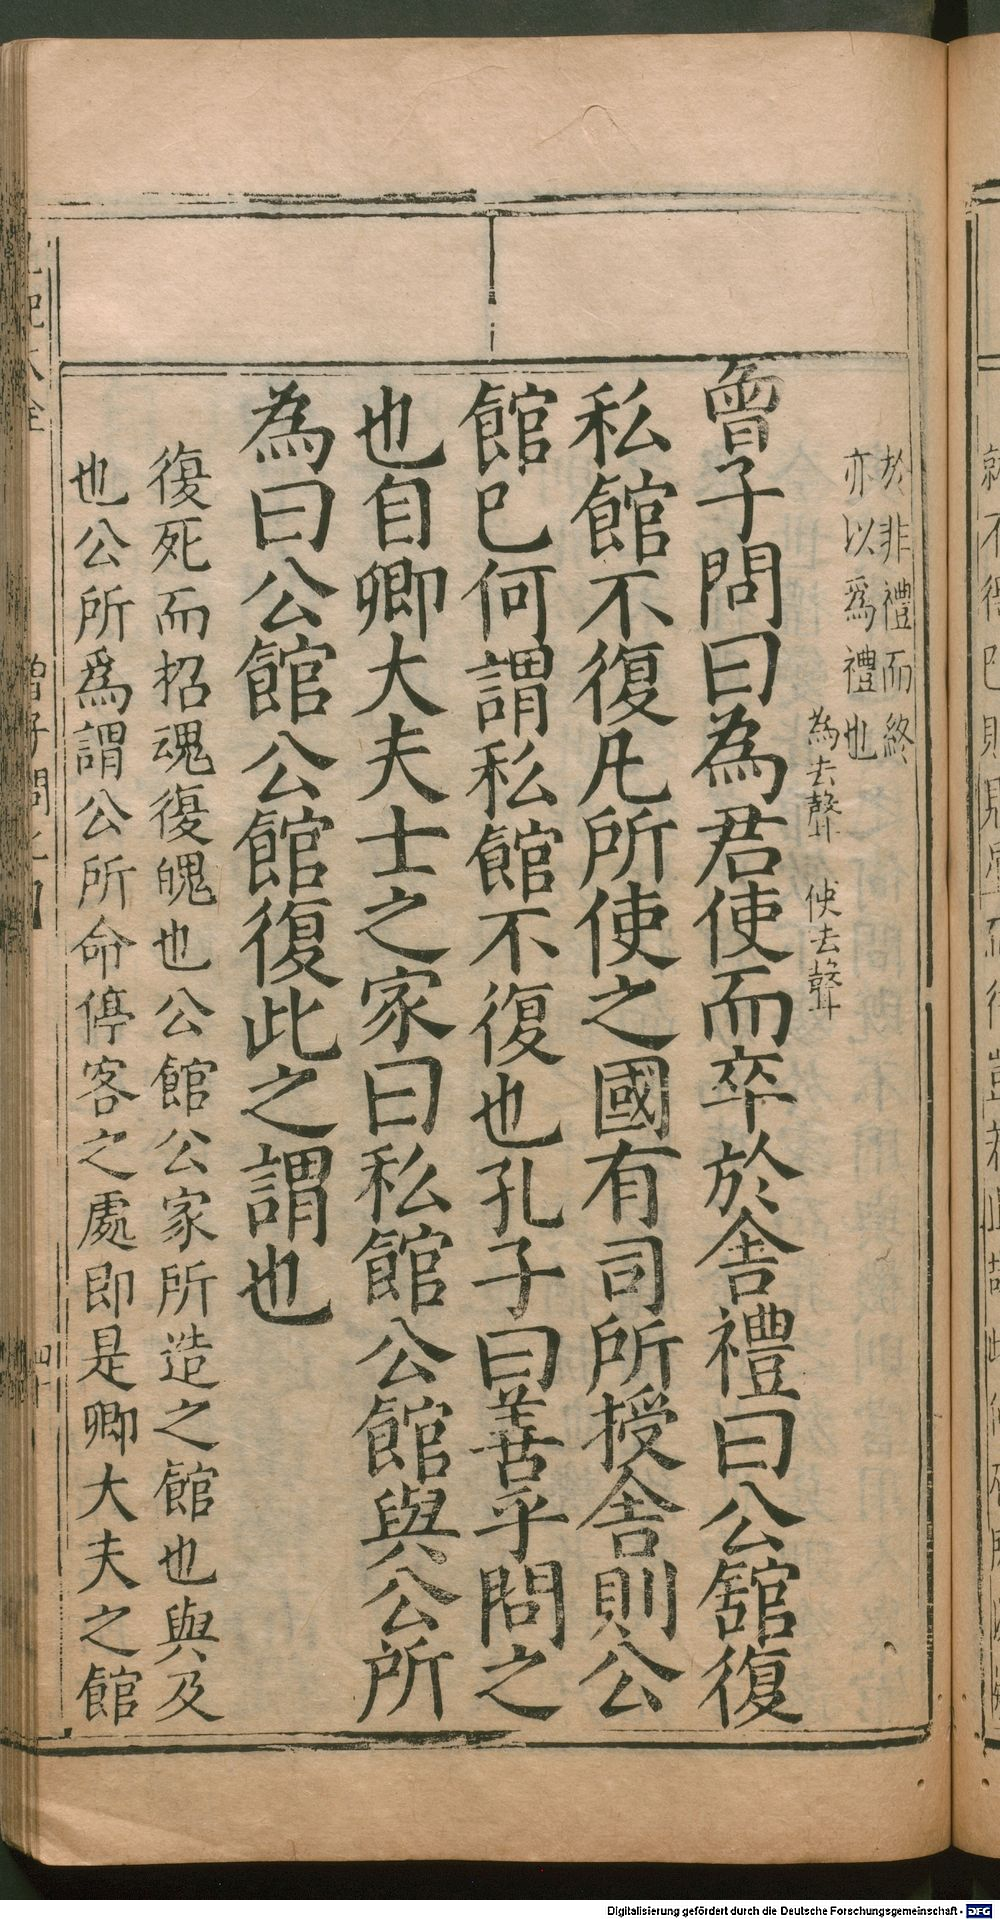 於非禮而終
亦以爲禮也
為去聲 使去聲
曾子問曰為君使而卒於舍禮曰公舘復
私館不復凡所使之國有司所授舍則公
館已何謂私館不復也孔子曰善乎問之
也自卿大夫士之家曰私館公館與公所
為曰公館公館復此之謂也
復死而招魂復魄也公館公家所造之館也與及
也公所爲謂公所命停客之處即是卿大夫之館
曾子問之四
Digitalisierung gefördert durch die Deutsche Forschungsgemeinschaft - DFG